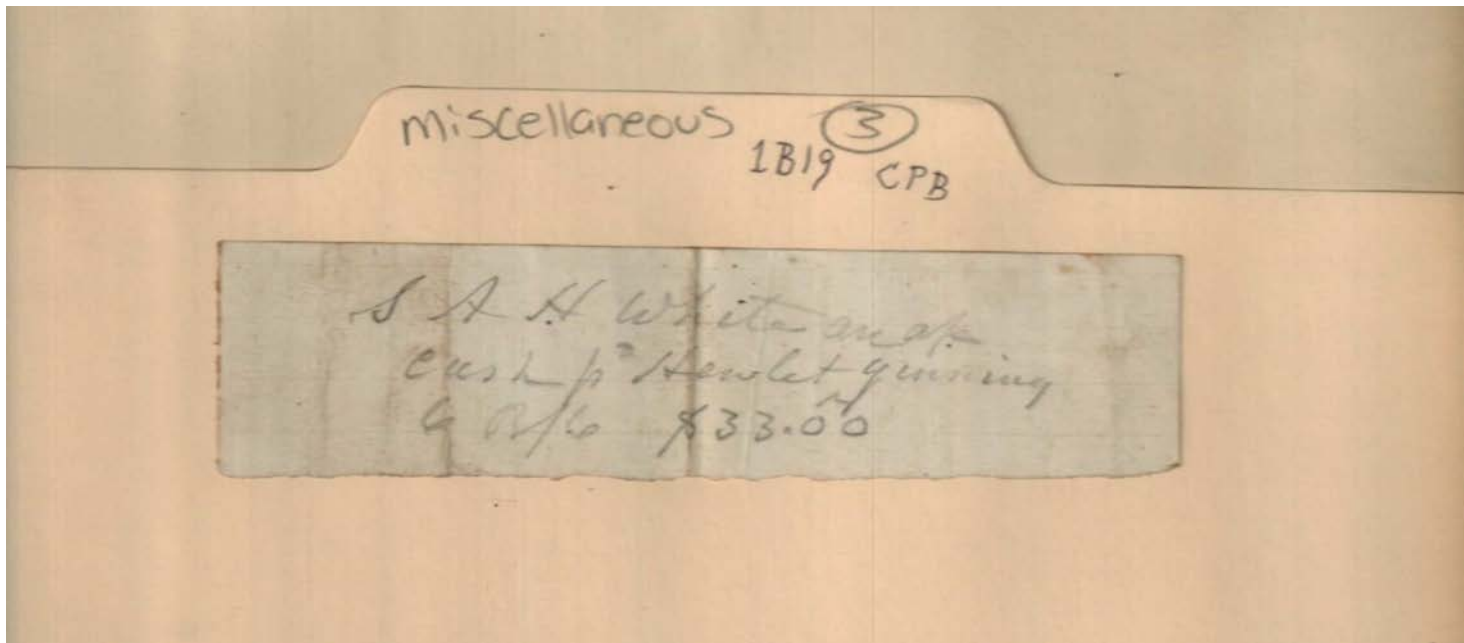 miscellaneous 3
1B19 CPB
S A H White on a/c
cash pd Hewlet ginning
6 B/C $33.00